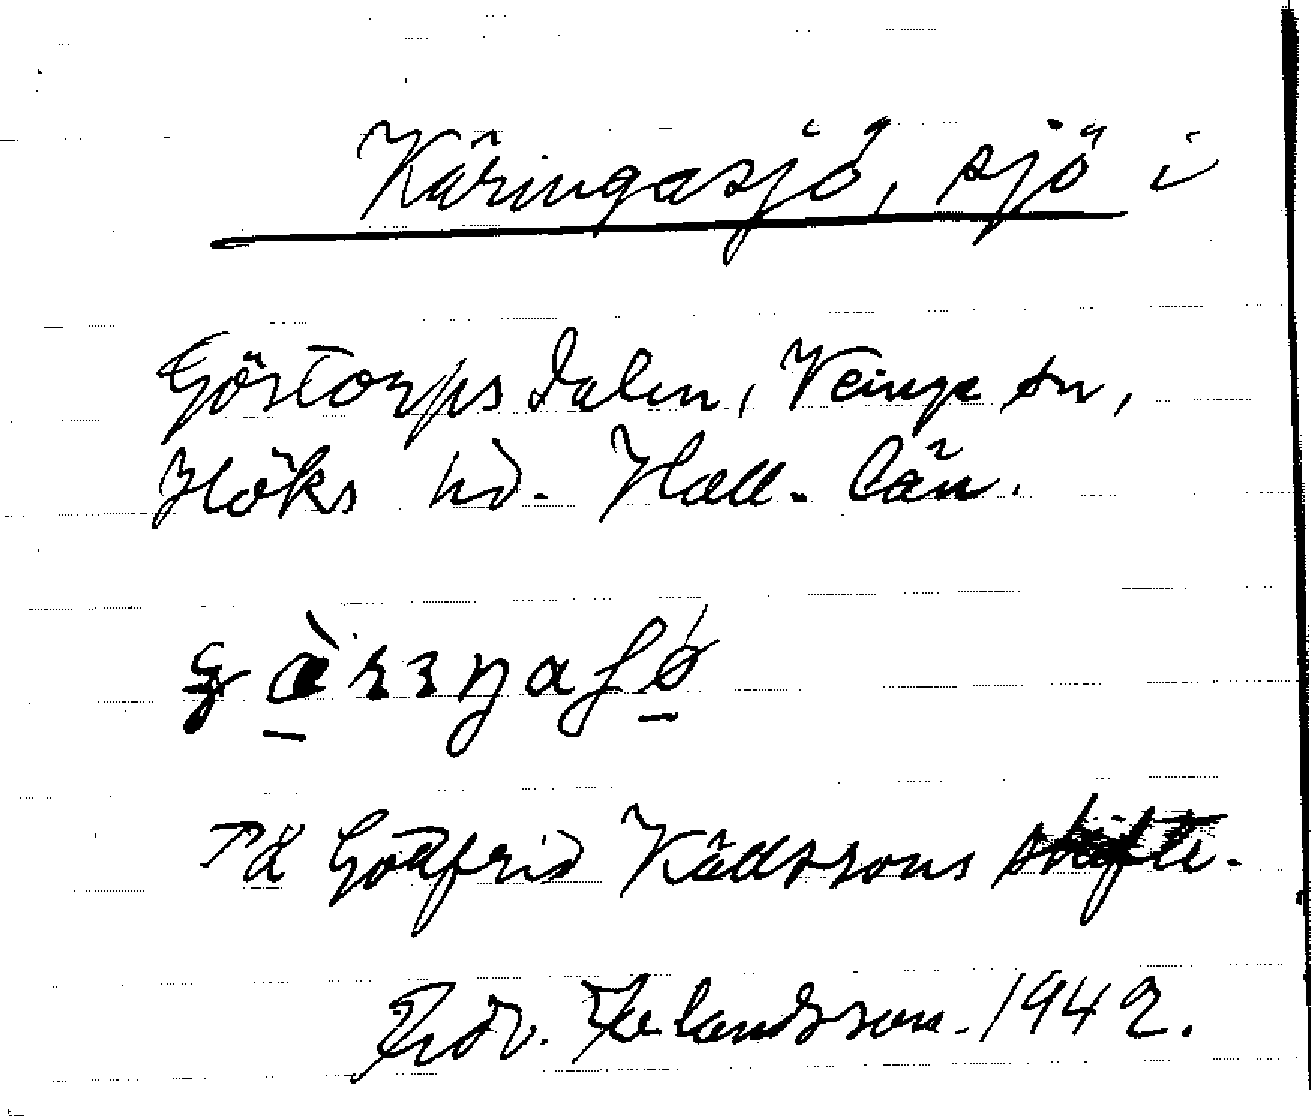 Käringasjö, sjö i
Göstorpsdalen, Veinge sn,
Höks hd. Hall. län.
På Gottfrid Källssons skifte.
Fridv. Helandsson. 1942.